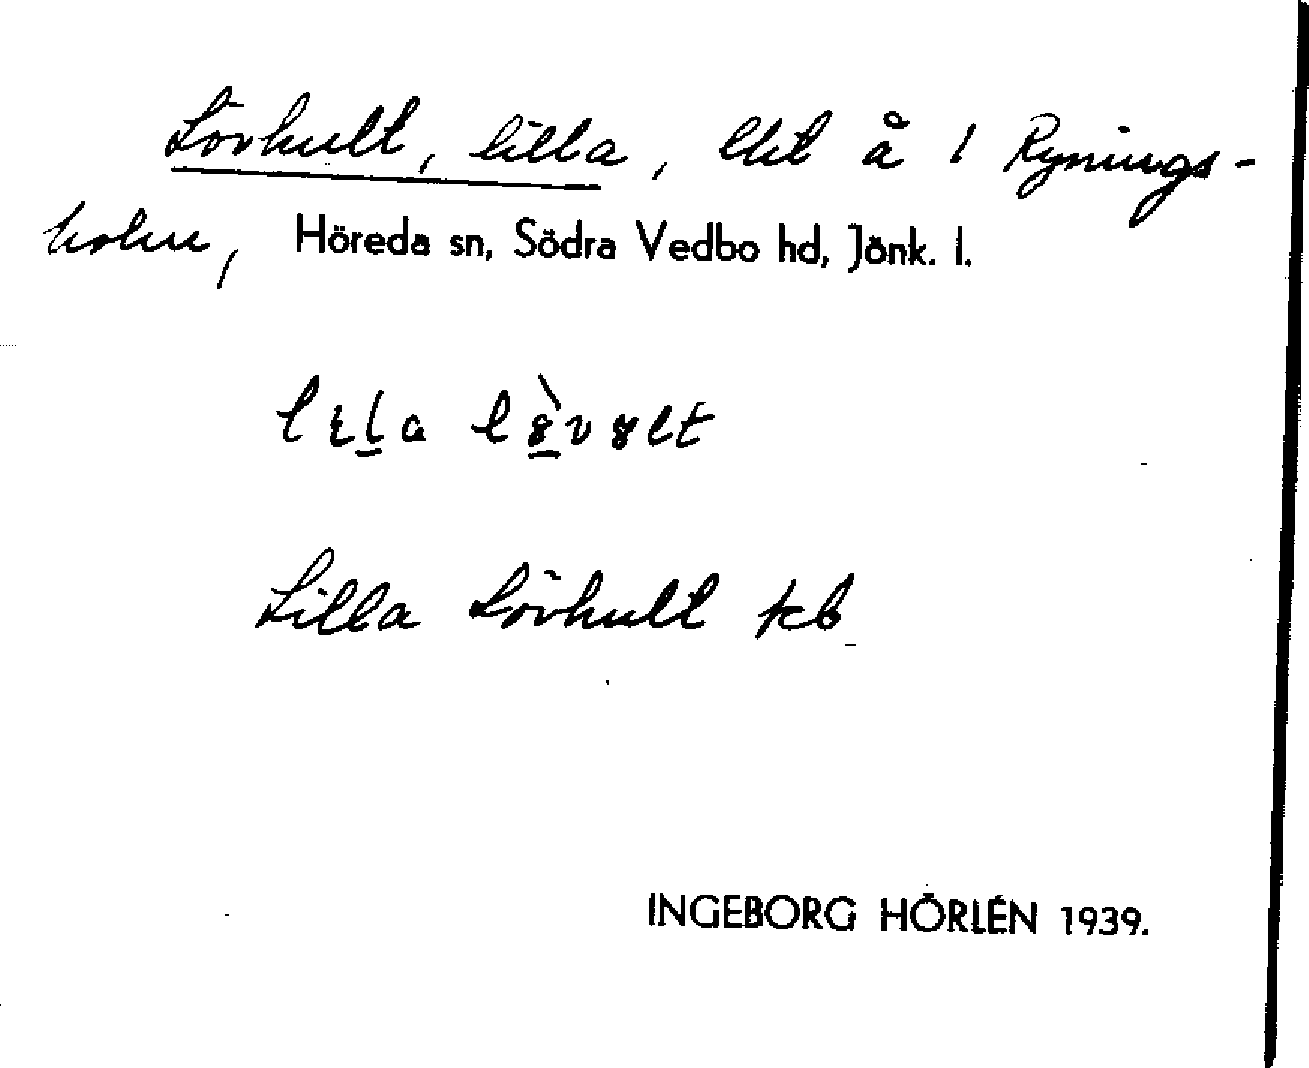 Lövhult, lilla, Lht å 1 Rynings-
holm, Höreda sn, Södra Vedbo hd, Jönk. l.
Lilla Lövhult kb
INGEBORG HÖRLÉN 1939.